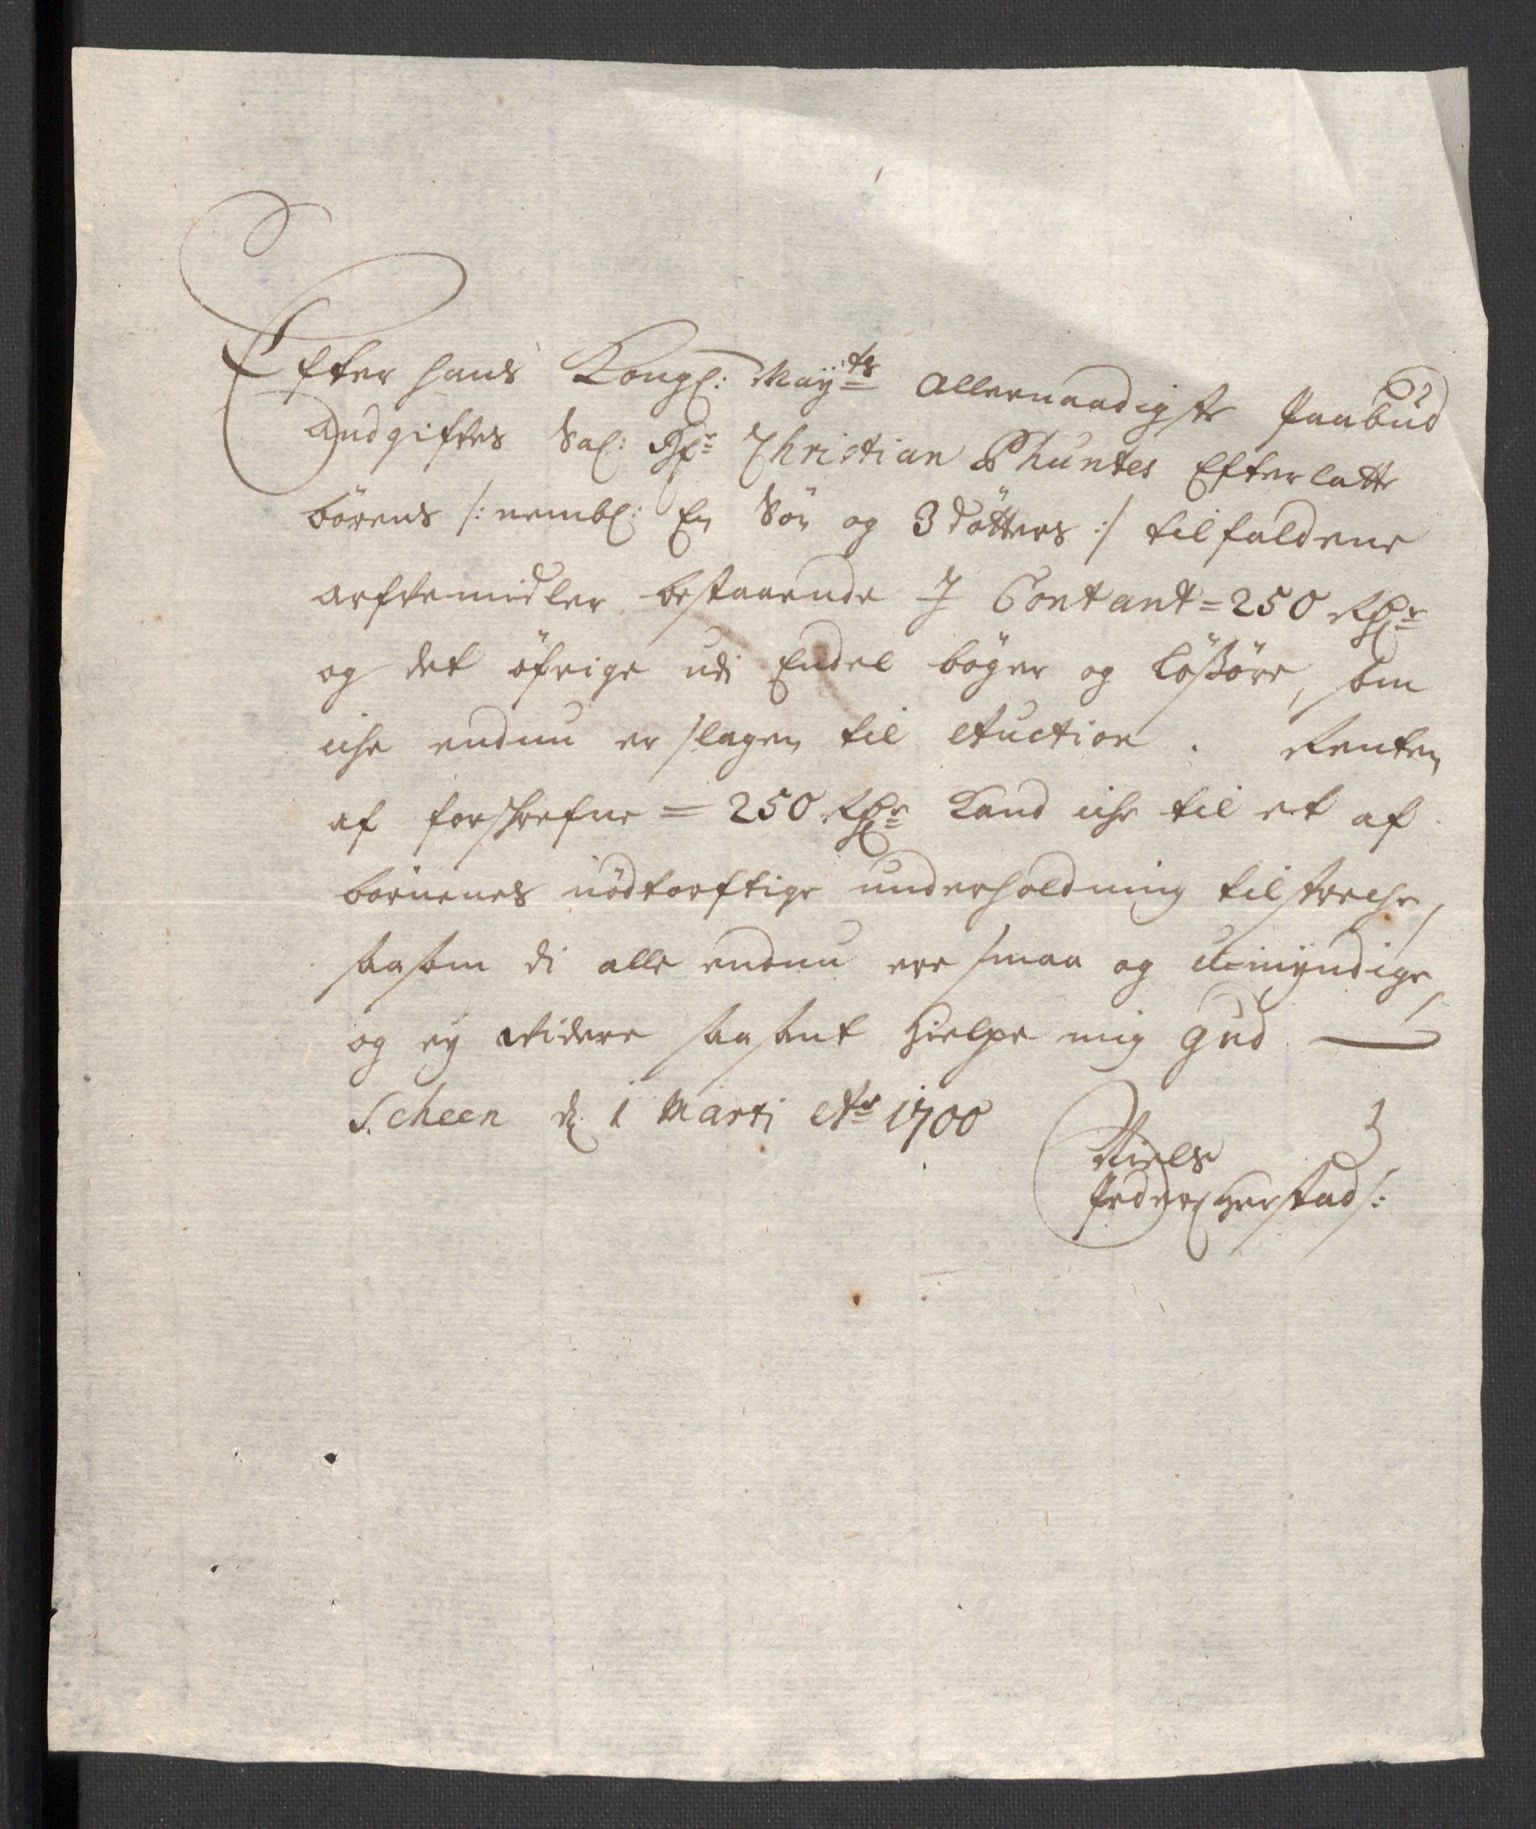 Efter hans Kongl: Maÿ:ts Allernaadigste Paabud
Andgifves Sal: Hr Christian Phuntes Efterlatte
börens /: nembl: En Sön og 3 dötters :/ tilfaldene
arfvemidler bestaaende J Contant = 250 Rdr
og det öfrige udi Endel böger og Lößöre, som
iche endnu er slagen til Auction. Renten
af forschrefne = 250 Rdr Kand iche til et af
börnenes nödtorftige underholdning tilstreche,
saasom di alle endnu ere smaa og Umÿndige,
og eÿ Videre saasant hielpe mig Gud
Scheen d. 1 Marti Ao 1700
Niels
Peders: Herstad